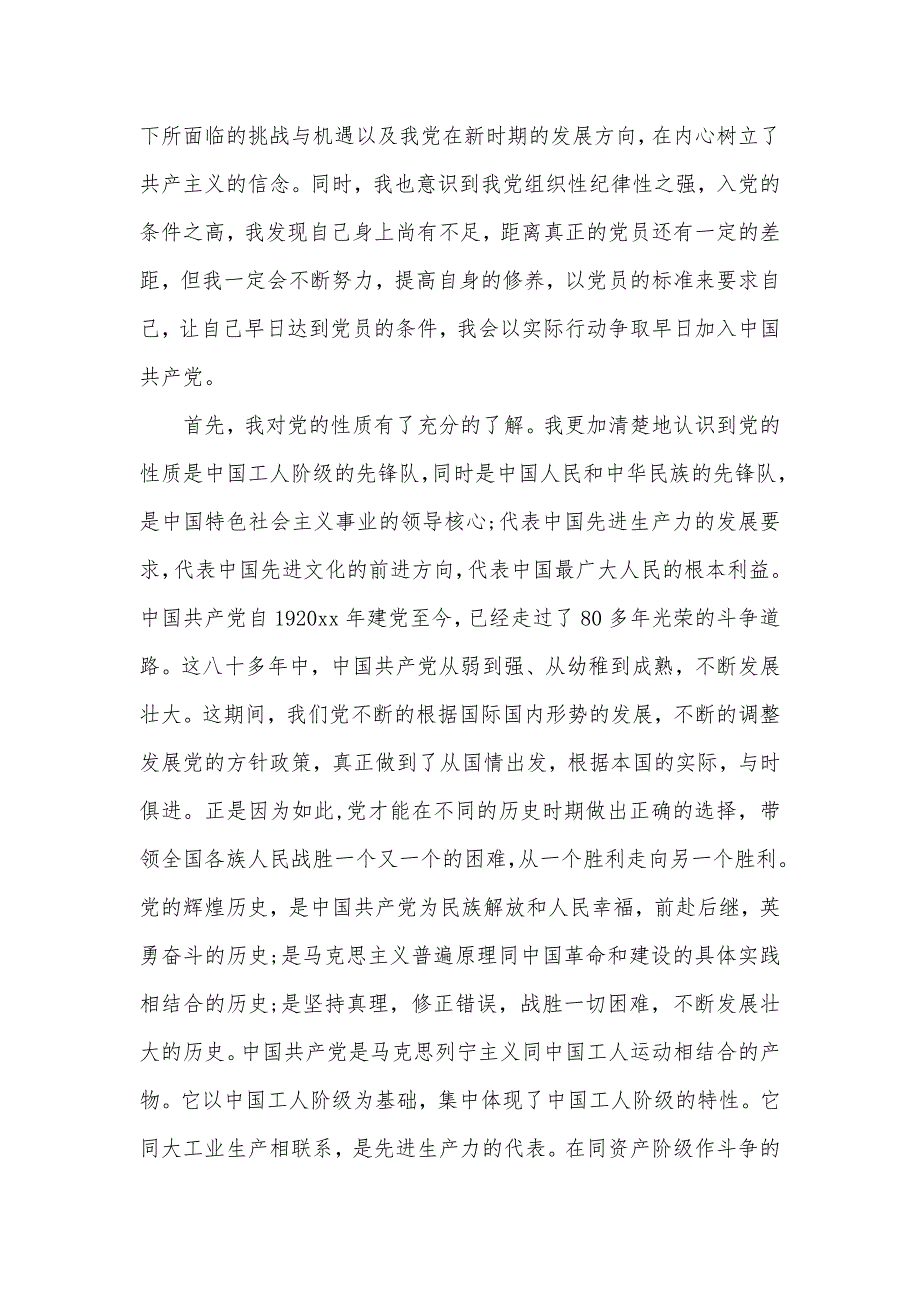 下所面临的挑战与机遇以及我党在新时期的发展方向，在内心树立了
共产主义的信念。同时，我也意识到我党组织性纪律性之强，入党的
条件之高，我发现自己身上尚有不足，距离真正的党员还有一定的差
距，但我一定会不断努力，提高自身的修养，以党员的标准来要求自
己，让自己早日达到党员的条件，我会以实际行动争取早日加入中国
共产党。
首先，我对党的性质有了充分的了解。我更加清楚地认识到党的
性质是中国工人阶级的先锋队，同时是中国人民和中华民族的先锋队，
是中国特色社会主义事业的领导核心;代表中国先进生产力的发展要
求，代表中国先进文化的前进方向，代表中国最广大人民的根本利益。
中国共产党自 1920xx 年建党至今，已经走过了 80 多年光荣的斗争道
路。这八十多年中，中国共产党从弱到强、从幼稚到成熟，不断发展
壮大。这期间，我们党不断的根据国际国内形势的发展，不断的调整
发展党的方针政策，真正做到了从国情出发，根据本国的实际，与时
俱进。正是因为如此,党才能在不同的历史时期做出正确的选择，带
领全国各族人民战胜一个又一个的困难，从一个胜利走向另一个胜利。
党的辉煌历史，是中国共产党为民族解放和人民幸福，前赴后继，英
勇奋斗的历史;是马克思主义普遍原理同中国革命和建设的具体实践
相结合的历史;是坚持真理，修正错误，战胜一切困难，不断发展壮
大的历史。中国共产党是马克思列宁主义同中国工人运动相结合的产
物。它以中国工人阶级为基础，集中体现了中国工人阶级的特性。它
同大工业生产相联系，是先进生产力的代表。在同资产阶级作斗争的